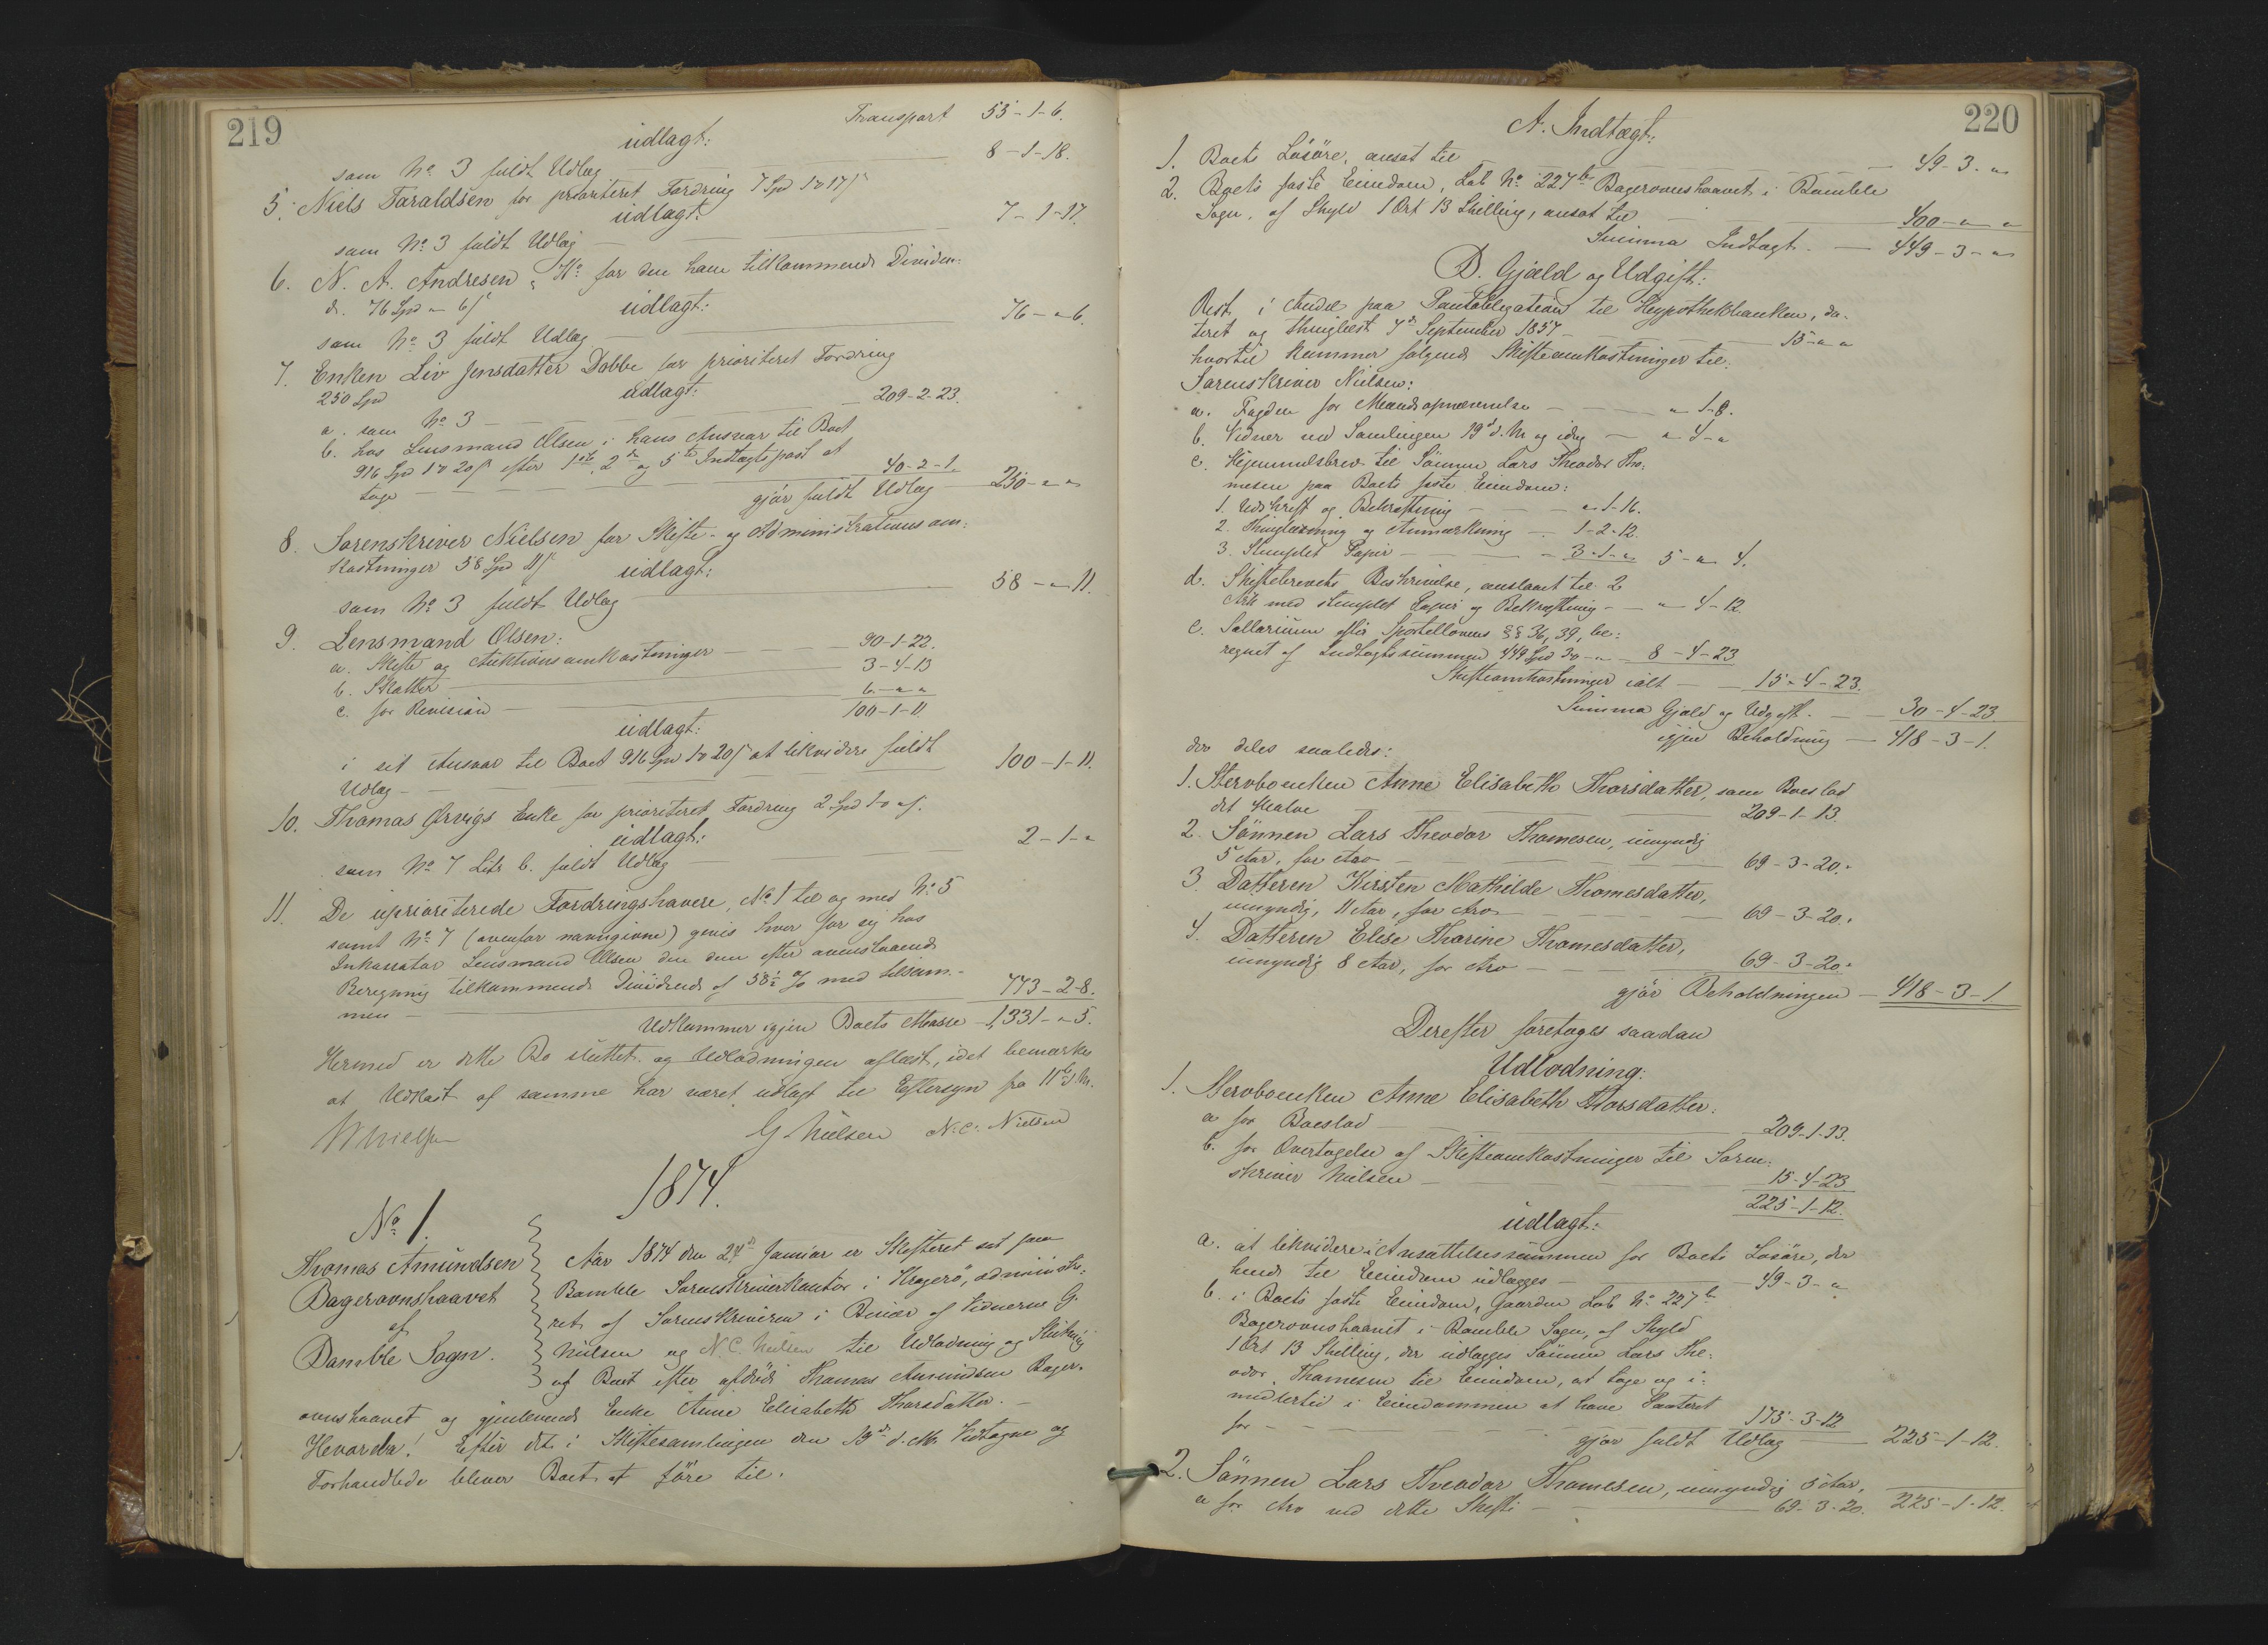 219
Transport 55-1-6.
udlagt:
som No 3 fuldt Udlæg — 8-1-18.
5. Niels Taraldsen for prioriteret Fordring 7 Spd 1 o 17 ß
udlagt:
som No 3 fuldt Udlæg — 7-1-17.
6. N. A. Andresen & Ko for den ham tilkommende Dividen-
de 76 Spd " 6 ß udlagt:
som No 3 fuldt Udlæg — 76-"-6.
7. Enken Liv Jensdatter Dobbe for prioriteret Fordring
250 Spd udlagt:
a. som No 3 — 209-2-23.
b. hos Lensmand Olsen i hans Ansvar til Boet
916 Spd 1 o 20 ß efter 1ste, 2den og 5te Indtægtspost at
tage — 40-2-1.
gjør fuldt Udlæg 250-"-"
8. Sorenskriver Nielsen for Skifte- og Administrationsom-
kostninger 58 Spd 11 ß udlagt:
som No 3 fuldt Udlæg — 58-"-11.
9. Lensmand Olsen:
a. Skifte og Auktionsomkostninger — 90-1-22.
b. Skatter — 3-4-13
c. for Revision — 6-"-"
100-1-11
udlagt:
i sit Ansvar til Boet 916 Spd 1 o 20 ß at likvidere fuldt
Udlæg — 100-1-11.
10. Thomas Ørvigs Enke for prioriteret Fordring 2 Spd 1 o " ß.
udlagt:
som No 7 Litr b. fuldt Udlæg — 2-1-"
11. De uprioriterede Fordringshavere, No 1 til og med No 5
samt No 7 (ovenfor navngivne) gives hver for sig hos
Inkassator Lensmand Olsen den dem efter ovenstaaende
Beregning tilkommende Dividende af 58½ % med tilsam-
men — 773-2-8.
Udkommer igjen Boets Masse — 1,331-"-5.
Hermed er dette Bo sluttet og Udlodningen aflæst, idet bemærkes
at Udkast af samme har været udlagt til Eftersyn fra 11te d. M.
G. Nielsen N. C. Nielsen
1874.
No 1.
Thomas Amundsen
Bagerovnshaavet
af
Bamble Sogn.
Aar 1874 den 24de Januar er Skifteret sat paa
Bamble Sorenskriverkontor i Kragerö, administre-
ret af Sorenskriveren i Beiser af Vidnerne G.
Nielsen og N. C. Nielsen til Udlodning og Slutning
af Boet efter afdöde Thomas Amundsen Bager-
ovnshaavet og gjenlevende Enke Anne Elisabeth Thorsdatter. —
Hvorda! Efter det i Skiftesamlingen den 19de d. M. Vedtagne og
Forhandlede bliver Boet at före til.
220
A. Indtægt:
1. Boets Lösöre, ansat til — 49-3-"
2. Boets faste Eiendom, Löb No 227b Bagerovnshaavet i Bamble
Sogn, af Skyld 1 Ort 13 Skilling, ansat til — 400-"-"
Summa Indtægt — 449-3-"
B. Gjæld og Udgift:
Rest i Andel paa Pantobligation til Hypothekbanken, da-
teret og thinglæst 7de September 1857 — 15-"-"
hvortil kommer følgende Skifteomkostninger til:
Sorenskriver Nielsen:
a. Fogden for Mændsopnævnelse — "-1-8.
b. Vidner ved Samlingen 19de d. M. og idag — "-4-"
c. Hjemmelsbrev til Sönnen Lars Theodor Tho-
mesen paa Boets faste Eiendom:
1. Udskrift og Bekræftning — "-1-16.
2. Thinglæsning og Anmærkning — 1-2-12.
3. Stemplet Papir — 3-1-" 5-"-4.
d. Skiftebrevets Beskrivelse, anslaaet til 2
Ark med stemplet Papir og Bekræftning — "-4-12.
e. Sallarium efter Sportellovens §§ 36, 39, be-
regnet af Indtægtssummen 449 Spd 3 o " — 8-4-23
Skifteomkostninger ialt — 15-4-23.
Summa Gjæld og Udgift. — 30-4-23.
igjen Beholdning — 418-3-1.
der deles saaledes:
1. Stervboenken Anne Elisabeth Thorsdatter, som Boeslod
det Halve — 209-1-13.
2. Sönnen Lars Theodor Thomesen, umyndig
5 Aar, for Arv — 69-3-20.
3. Datteren Kirsten Mathilde Thomesdatter,
umyndig, 11 Aar, for Arv — 69-3-20.
4. Datteren Elise Thorine Thomesdatter,
umyndig 8 Aar, for Arv — 69-3-20.
gjör Beholdningen — 418-3-1
Derefter foretages saadan
Udlodning:
1. Stervboenken Anne Elisabeth Thorsdatter:
a for Boeslod — 209-1-13.
b. for Overtagelse af Skifteomkostninger til Soren-
skriver Nielsen — 15-4-23
225-1-12.
udlagt:
a. at likvidere i Ansættelsessummen for Boets Lösöre, der
hende til Eiendom udlægges — 49-3-"
b. i Boets faste Eiendom, Gaarden Löb No 227b
Bagerovnshaavet i Bamble Sogn, af Skyld
1 Ort 13 Skilling, der udlægges Sönnen Lars The-
odor Thomesen til Eiendom, at tage og i-
midlertid i Eiendommen at have Panteret
for — 175-3-12
gjör fuldt Udlæg — 225-1-12.
2. Sönnen Lars Theodor Thomesen, umyndig 5 Aar,
a for Arv ved dette Skifte — 69-3-20. 225-1-12.